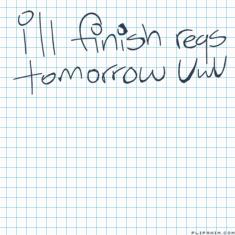 ill finish reqs
tomorrow UwU
FLIPANIM.COM